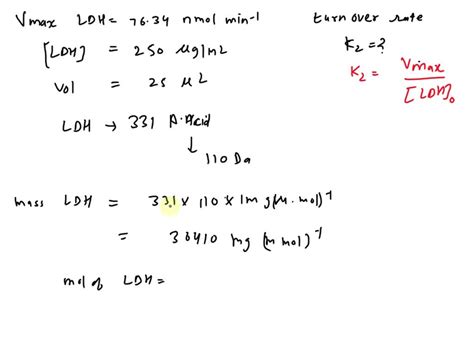 Vmax LDH = 76.34 nmol min-1
[LDH] = 250 μg/mL
Vol = 25 μL
LDH → 331 A.Acid
↓
110 Da
turn over rate
K2 = ?
K2 = Vmax / [LDH]0
mass LDH = 331 × 110 × 1mg(m.mol)-1
= 36410 mg (m mol)-1
mol of LDH =